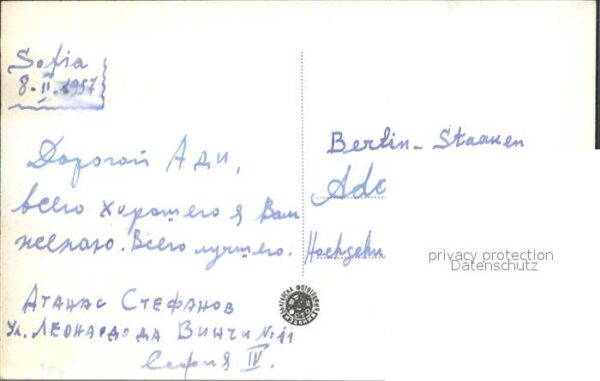 Sofia
8-II-1957
Дорогой Ади,
всего хорошего я Вам
желаю. Всего лучшего.
Атанас Стефанов
Ул. Леонардо да Винчи № 11
София IV.
Berlin-Staaken
Ado
privacy protection
Datenschutz